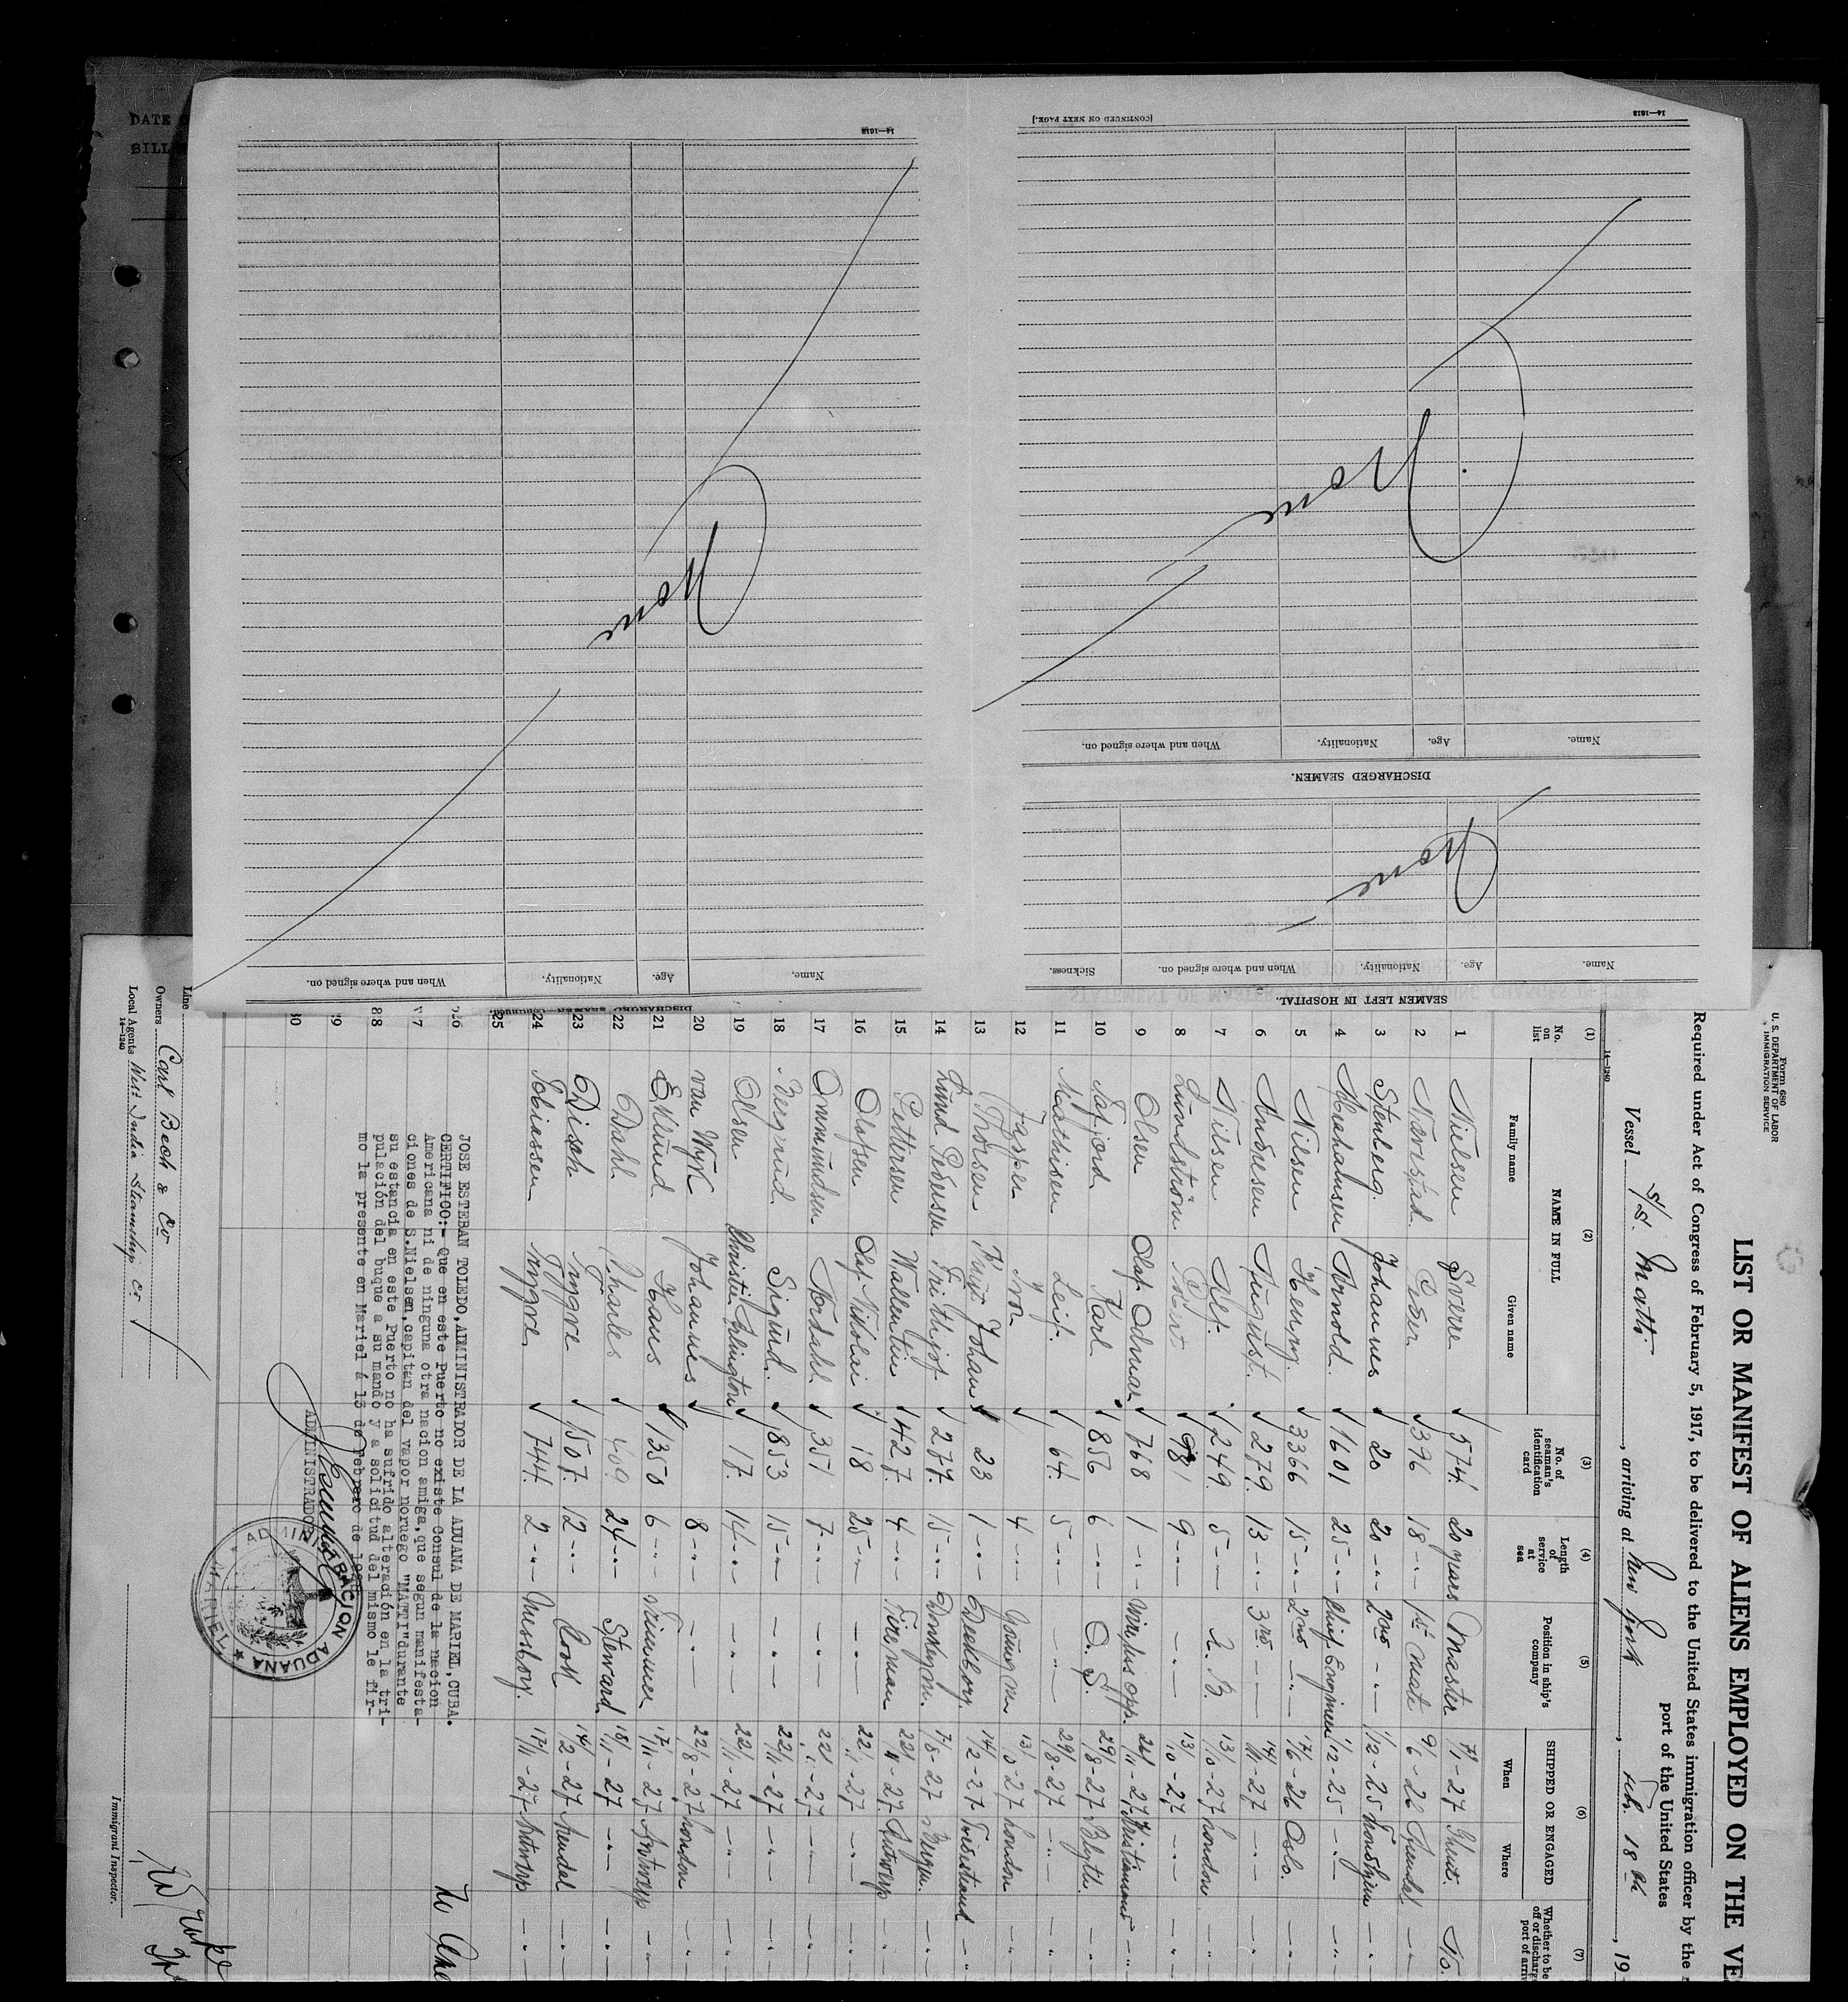 DATE
BILL
14—1612
When and where signed on.
Nationality.
Age.
Name,
None
DISCHARGED SEAMEN—Continued.
SEAMEN LEFT IN HOSPITAL.
Name.
Age.
Nationality.
When and where signed on.
Sickness.
None
DISCHARGED SEAMEN.
Name.
Age.
Nationality.
When and where signed on.
None
[CONTINUED ON NEXT PAGE.]
14—1612
Form 680
U. S. DEPARTMENT OF LABOR
IMMIGRATION SERVICE
LIST OR MANIFEST OF ALIENS EMPLOYED ON THE VE
Required under Act of Congress of February 5, 1917, to be delivered to the United States immigration officer by the
port of the United States
Vessel S/S. Matti, arriving at New York, Feb. 18th, 19
14—1240
(1) (2) (3) (4) (5) (6) (7)
No. on list NAME IN FULL Family name Given name No. of seaman's identification card Length of service at sea Position in ship's company SHIPPED OR ENGAGED When Where Whether to be off or discharge port of arriv
1 Nielsen Sverre 574 20 years Master 7/1-27 Ghent. No.
2 Nævestad Peder 396 18 -"- 1st Mate 9/6-26 Arendal -"-
3 Stenberg Johannes 20 20 -"- 2nd -"- 1/12-25 Trondhjem -"-
4 Abrahamsen Arnold. 1601 25 -"- Chief Engineer 1/12-25 -"- -"-
5 Nilsen Henry. 3366 15 -"- 2nd -"- 17/6-26 Oslo. -"-
6 Andresen August. 279. 13 -"- 3rd -"- 14/11-27 -"- -"-
7 Nilsen Alf. 249. 5 -"- A. B. 13/10-27 London -"-
8 Lundström 981 9 -"- -"- 13/10-27 -"- -"-
9 Olsen Olaf Odmar 768 1 -"- 26/11-27 Kristiansand -"-
10 Karl 856 6 -"- O. S. 29/8-27 Blyth. -"-
11 Mathisen Leif. 64. 5 -"- -"- 29/8-27 -"- -"-
12 Jasper Ivor 4 -"- Youngm 13/10-27 London -"-
13 Thorsen Knut Johan 23 1 -"- Deckboy. 14/2-27 -"-
14 Lund Pedersen Frithjof 277 15 -"- Donkeym. 7/8-27 Bergen. -"-
15 Pettersen Wallentin 427. 4 -"- Fireman 22/11-27 Antwerp
16 Olafsen Olaf Nikolai 18 25 -"- -"- 22/11-27 -"- -"-
17 Ommundsen Nordahl 351 7 -"- -"- 22/11-27 -"- -"-
18 Bergrud. Sigurd. 853 15 -"- -"- 22/11-27 -"- -"-
19 Olsen Christin 17. 14 -"- -"- 22/11-27 -"- -"-
20 van Wyk Johannes 8 -"- 22/8-27 London -"-
21 Eklund Hans 1350 6 -"- Trimmer 17/11-27 Antwerp -"-
22 Dahl Charles 409 24 -"- Steward 18/1-27 -"- -"-
23 Disch Tryggve 1507 12 -"- Cook 14/2-27 Arendal -"-
24 Tobiassen Tryggve. 744. 2 -"- Messboy. 17/11-27 Antwerp -"-
25
26
27
28
29
30
JOSE ESTEBAN TOLEDO, ADMINISTRADOR DE LA ADUANA DE MARIEL, CUBA.
CERTIFICO:- Que en este Puerto no existe Consul de la nacion
Americana ni de ninguna otra nacion amiga, que segun manifesta-
ciones de S. Nielsen, capitan del vapor noruego "MATTI" durante
su estancia en este Puerto no ha sufrido alteración en la tri-
pulación del buque a su mando y a solicitud del mismo le fir-
mo la presente en Mariel á 13 de Febrero de
ADMINISTRADOR
ADMINISTRACION ADUANA ★ MARIEL ★
Line
Owners Carl Bech & Co
Local Agents West India Steamship Co
14—1240
Immigrant Inspector.